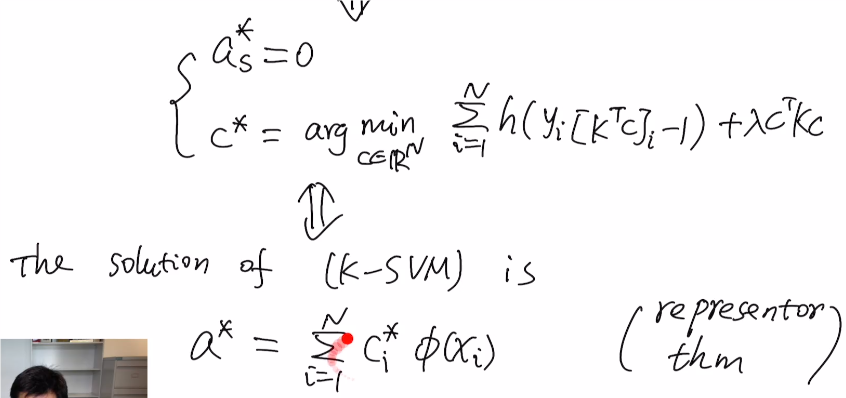 ⇓
{ a_S^* = 0
c^* = arg min_{c∈ℝ^N} ∑_{i=1}^N h(y_i [K^T c]_i - 1) + λ c^T K c
⇕
The solution of (K-SVM) is
a^* = ∑_{i=1}^N c_i^* φ(x_i) (representor thm)